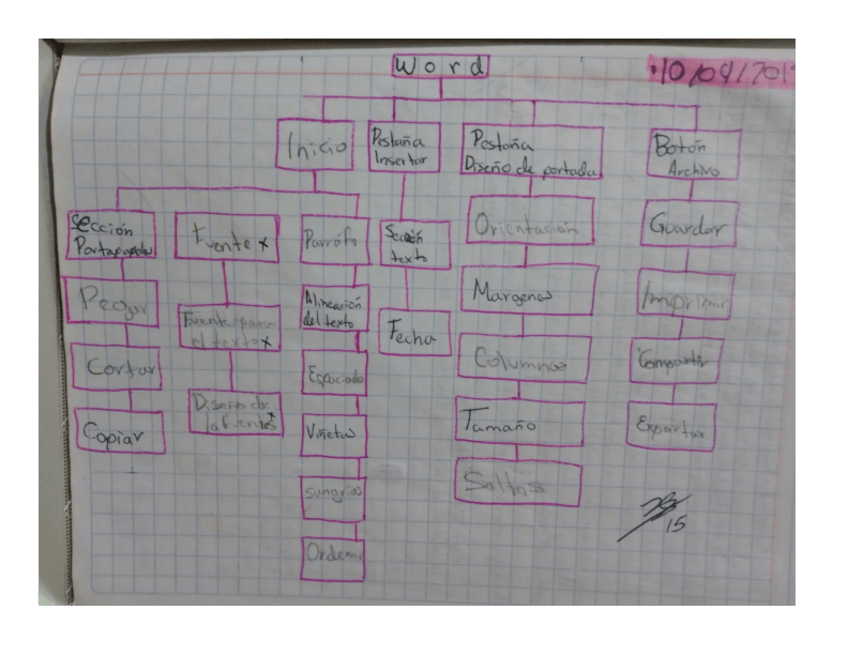 Word
10/09/201
Inicio
Pestaña
Insertar
Pestaña
Diseño de portada
Botón
Archivo
Sección
Portapapeles
Fuente x
Parrafo
Sección
texto
Orientación
Guardar
Pegar
Fuente para
el texto x
Alineación
del texto
Fecha
Margenes
Imprimir
Cortar
Diseño de
la fuente
Espaciado
Columnas
Compartir
Copiar
Viñetas
Tamaño
Exportar
Sangrias
Saltos
15
Ordenar